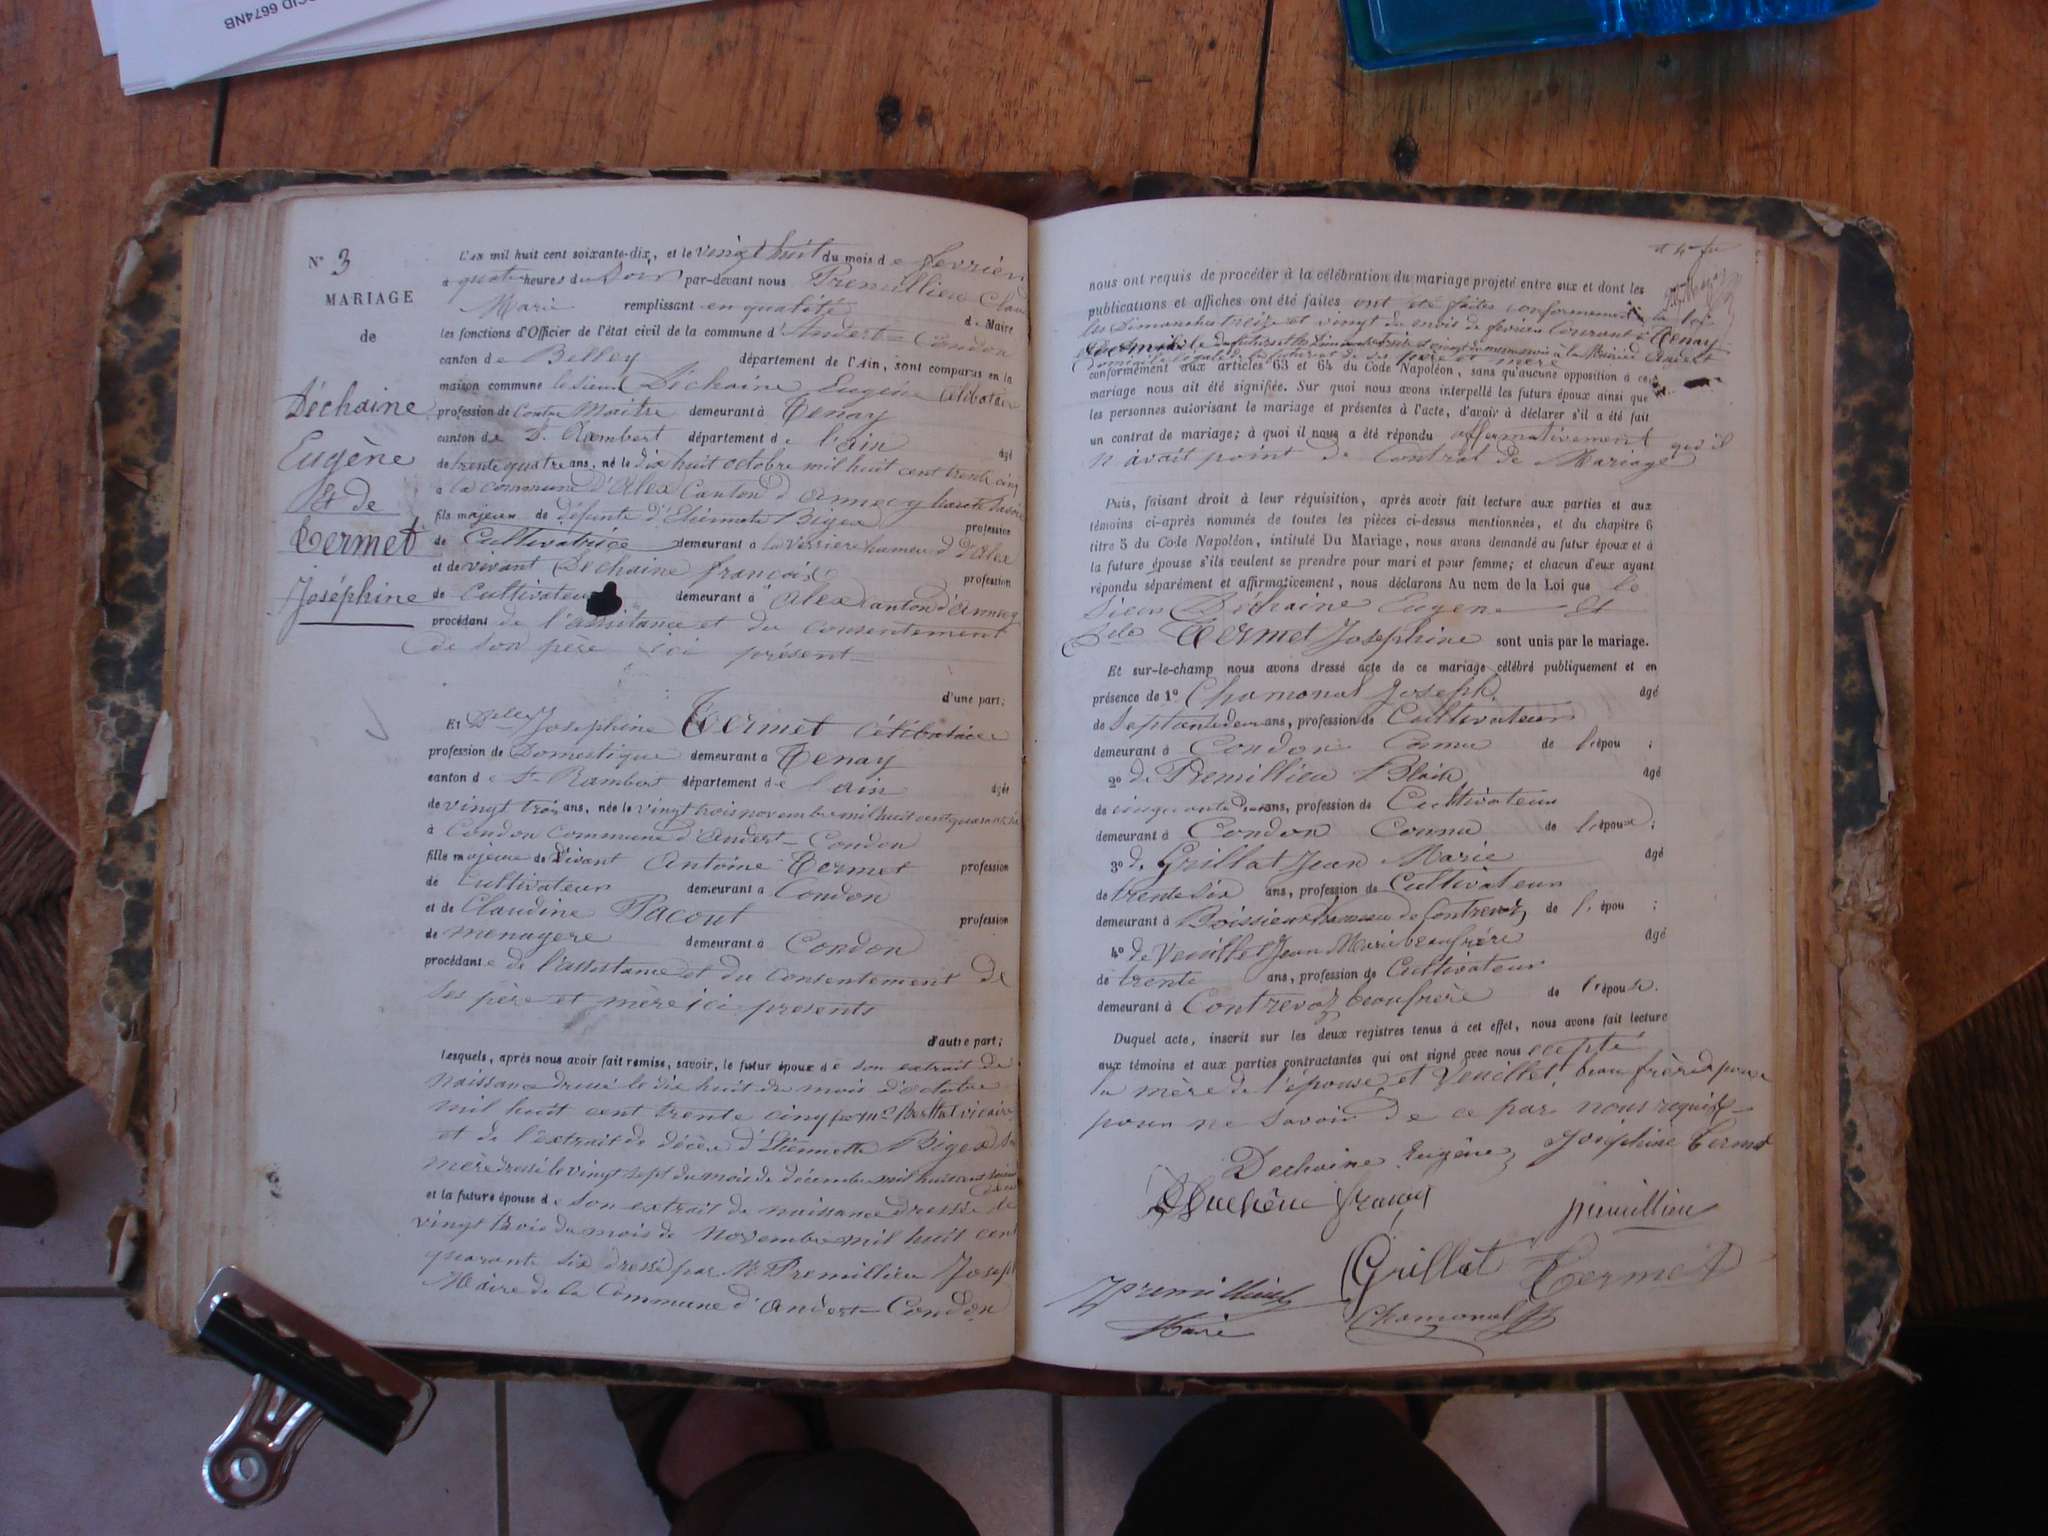 6674NB
N° 3
MARIAGE
de
Déchaine
Eugène
Et de
Termet
Joséphine
L'an mil huit cent soixante-dix, et le vingt huit du mois de fevrier
à quatre heures du Soir par-devant nous Premillieu
remplissant en qualité de Maire
les fonctions d'Officier de l'état civil de la commune d'Andert-Condon
canton de Belley département de l'Ain, sont comparus en la
maison commune le sieur Déchaine Eugène
profession de Contre Maitre demeurant à Tenay
canton de S. Rambert département de l'ain âgé
de trente quatre ans, né le dix huit octobre mil huit cent trente cinq
à la commune d'Alex Canton d'annecy haute Savoie
fils majeur de défunte d'Etiennette Bigex profession
de Cultivatrice demeurant à la verriere hameau d'Alex
et de vivant Dechaine françois profession
de Cultivateur demeurant à Alex canton d'annecy
procédant de l'assistance et du consentement
de son père ici présent
d'une part;
Et Delle Josephine Termet Célibataire
profession de Domestique demeurant à Tenay
canton de St Rambert département de l'ain âgée
de vingt trois ans, née le vingt trois novembre mil huit cent quarante six
à Condon Commune d'andert-Condon
fille majeure de Vivant Antoine Termet profession
de Cultivateur demeurant à Condon
et de Claudine Pacout profession
de menagere demeurant à Condon
procédante de l'assistance et du consentement de
ses père et mère ici presents
d'autre part;
Lesquels, après nous avoir fait remise, savoir, le futur époux de son extrait de
naissance dressé le dix huit du mois d'octobre
mil huit cent trente cinq par Mr vicaire
et de l'extrait de décès d'Etiennette Bigex sa
mère dressé le vingt sept du mois de décembre mil huit cent
et la future épouse de son extrait de naissance dressé le
vingt trois du mois de Novembre mil huit cent
quarante six dressé par Mr Premillieu Joseph
Maire de la Commune d'andert-Condon
nous ont requis de procéder à la célébration du mariage projeté entre eux et dont les
publications et affiches ont été faites ont été faites conformement à la loi
les Dimanches treize et vingt du mois de fevrier Courant à Tenay
conformément aux articles 63 et 65 du Code Napoléon, sans qu'aucune opposition à ce
mariage nous ait été signifiée. Sur quoi nous avons interpellé les futurs époux ainsi que
les personnes autorisant le mariage et présentes à l'acte, d'avoir à déclarer s'il a été fait
un contrat de mariage; à quoi il nous a été répondu affirmativement qu'il
n'avait point de Contrat de Mariage
Puis, faisant droit à leur réquisition, après avoir fait lecture aux parties et aux
témoins ci-après nommés de toutes les pièces ci-dessus mentionnées, et du chapitre 6
titre 5 du Code Napoléon, intitulé Du Mariage, nous avons demandé au futur époux et à
la future épouse s'ils veulent se prendre pour mari et pour femme; et chacun d'eux ayant
répondu séparément et affirmativement, nous déclarons Au nom de la Loi que le
Sieur Déchaine Eugene Et
Delle Termet Josephine sont unis par le mariage.
Et sur-le-champ nous avons dressé acte de ce mariage célébré publiquement et en
présence de 1° Chamonal Joseph âgé
de Septante deux ans, profession de Cultivateur
demeurant à Condon Connu de l'épou ;
2° de Premillieu Blaise âgé
de cinquante ans, profession de Cultivateur
demeurant à Condon Connu de l'époux ;
3° de Grillat Jean Marie âgé
de trente six ans, profession de Cultivateur
demeurant à Boissieu hameau de Contrevoz de l'épou ;
4° de Veuillet Jean Marie beaufrère âgé
de trente ans, profession de Cultivateur
demeurant à Contrevoz beaufrère de l'épouse.
Duquel acte, inscrit sur les deux registres tenus à cet effet, nous avons fait lecture
aux témoins et aux parties contractantes qui ont signé avec nous excepté
la mère de l'épouse et Veuillet, beau frère
pour ne savoir de ce par nous requis
Dechaine Eugène Joséphine Termet
premillieu
Grillat Termet
Premillieu Chamonal J
Maire